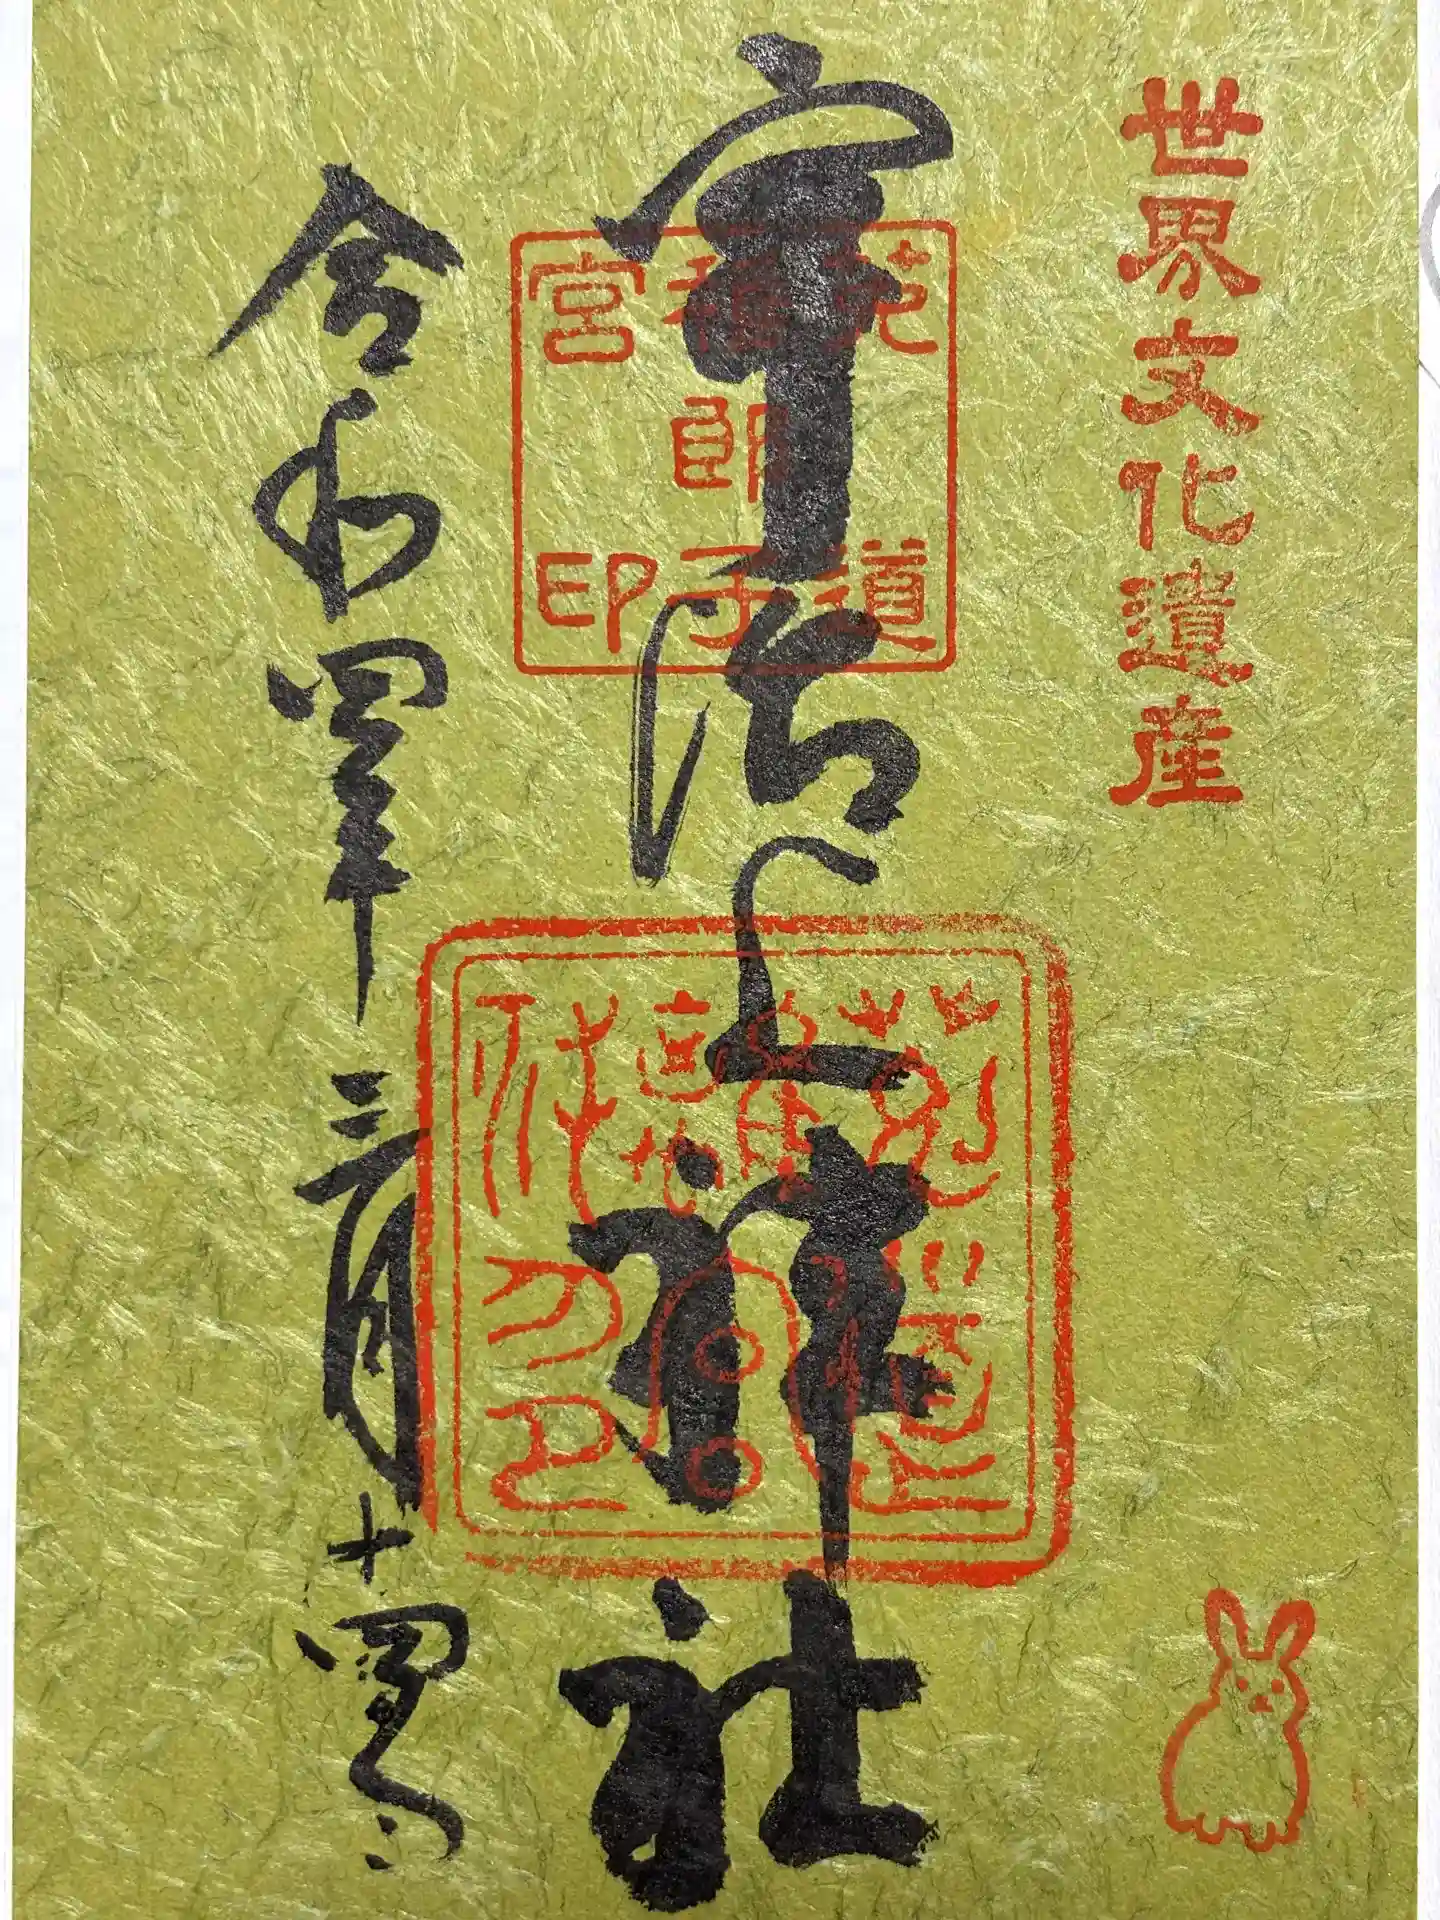 世界文化遺産
宇治上神社
菟道
稚郎子
宮印
令和四年三月十四日